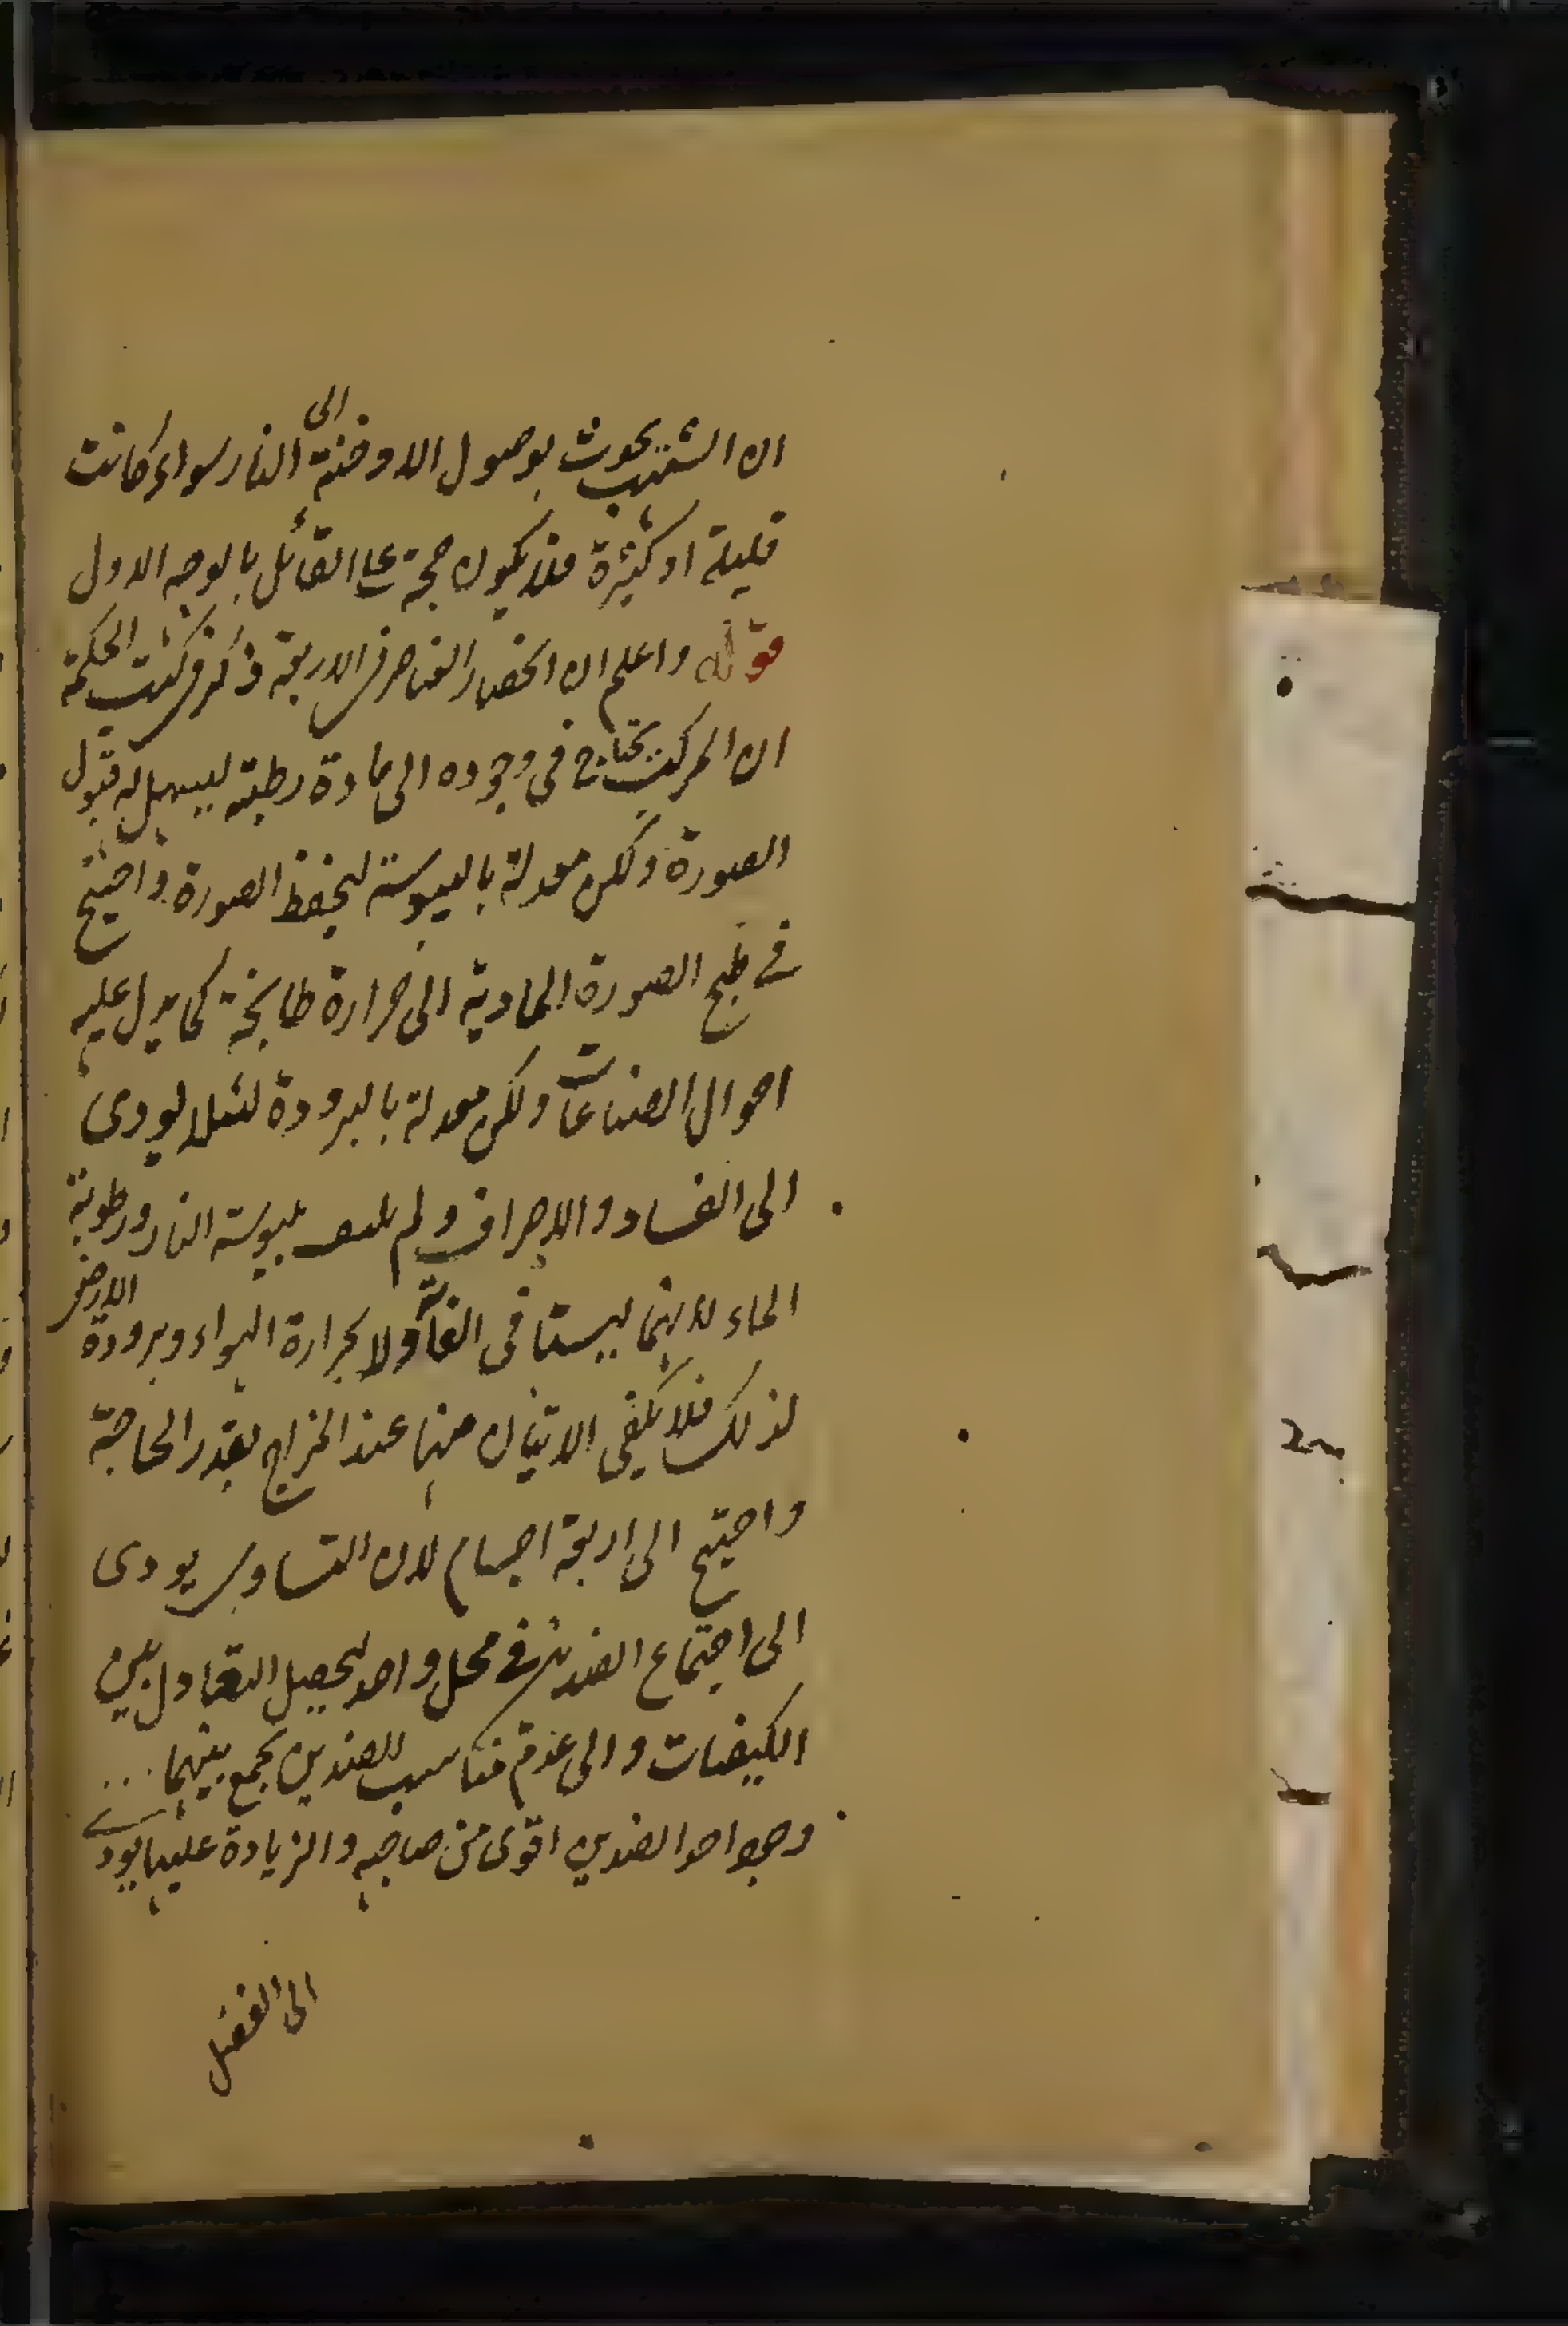 ان الشهب يحدث بوصول الادخنة الى النار سواء كانت
قليلة او كثيرة فلا يكون حجة على القائل بالوجه الاول
قوله واعلم ان انحصار العناصر في الاربعة ذكر في كتب الحكمة
ان المركب يحتاج في وجوده الى مادة رطبة ليسهل له قبول
الصورة ولكن معدلة باليبوسة ليحفظ الصورة واحتيج
في طبخ الصورة المادية الى حرارة طابخة كما يدل عليه
احوال الصناعات ولكن معدلة بالبرودة لئلا يودى
الى الفساد والاحراق ولم بيبوسة النار ورطوبة
الماء لانهما ليستا في الغاية ولا بحرارة الهواء وبرودة الارض
لذلك فلا يكفى الاتيان منهما عند المزاج بقدر الحاجة
واحتيج الى اربعة اجسام لان التساوى يودى
الى اجتماع الضدين في محل واحد ليحصل التعادل بين
الكيفيات والى عدم مناسب للضدين يجمع بينهما
وجعل احد الضدين اقوى من صاحبه والزيادة عليها يودى
الى الفضل